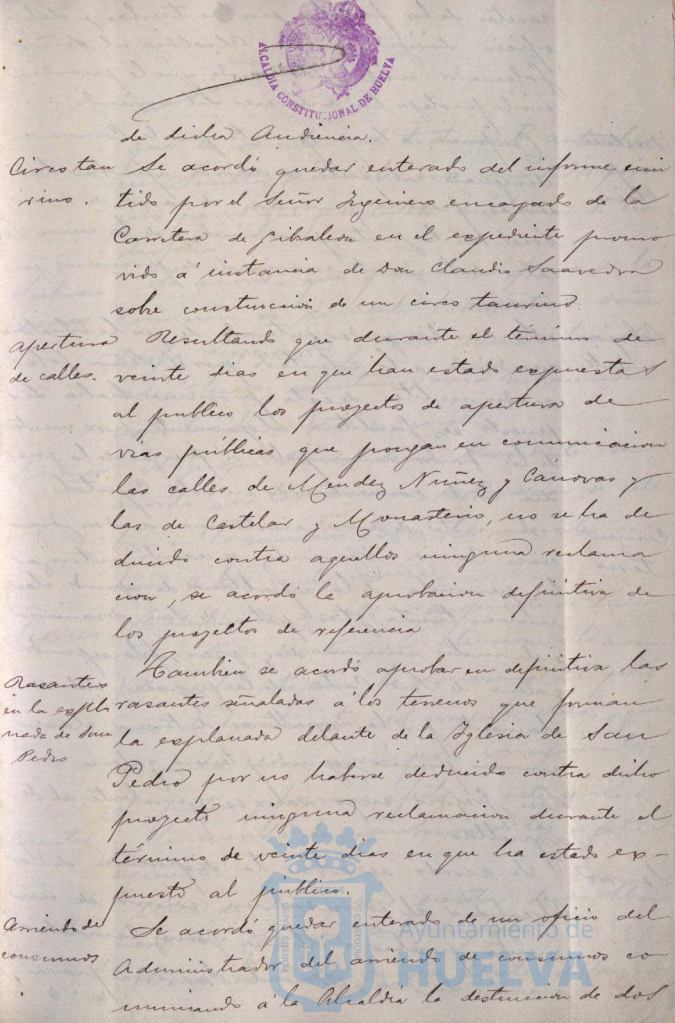 ALCALDIA CONSTITUCIONAL DE HUELVA
de dicha Audiencia.
Circo tau
rino.
Se acordó quedar enterado del informe emi
tido por el Señor Ingeniero encargado de la
Carretera de Gibraleon en el expediente promo
vido á instancia de Don Claudio Saavedra
sobre construccion de un circo taurino.
Apertura
de calles.
Resultando que durante el término de
veinte dias en que han estado expuestas
al publico los proyectos de apertura de
vias públicas que pongan en comunicacion
las calles de Mendez Nuñez y Cánovas y
las de Castelar y Monasterio, no se ha de
ducido contra aquellos ninguna reclama
cion, se acordó la aprobacion definitiva de
los proyectos de referencia
Rasantes
en la expla
nada de San
Pedro
Tambien se acordó aprobar en definitiva las
rasantes señaladas á los terrenos que forman
la explanada delante de la Iglesia de San
Pedro por no haberse deducido contra dicho
proyecto ninguna reclamacion durante el
término de veinte dias en que ha estado ex-
puesto al público.
Arriendo de
consumos
Se acordó quedar enterado de un oficio del
Administrador del arriendo de consumos co
municando á la Alcaldia la destitucion de dos
Ayuntamiento de
HUELVA